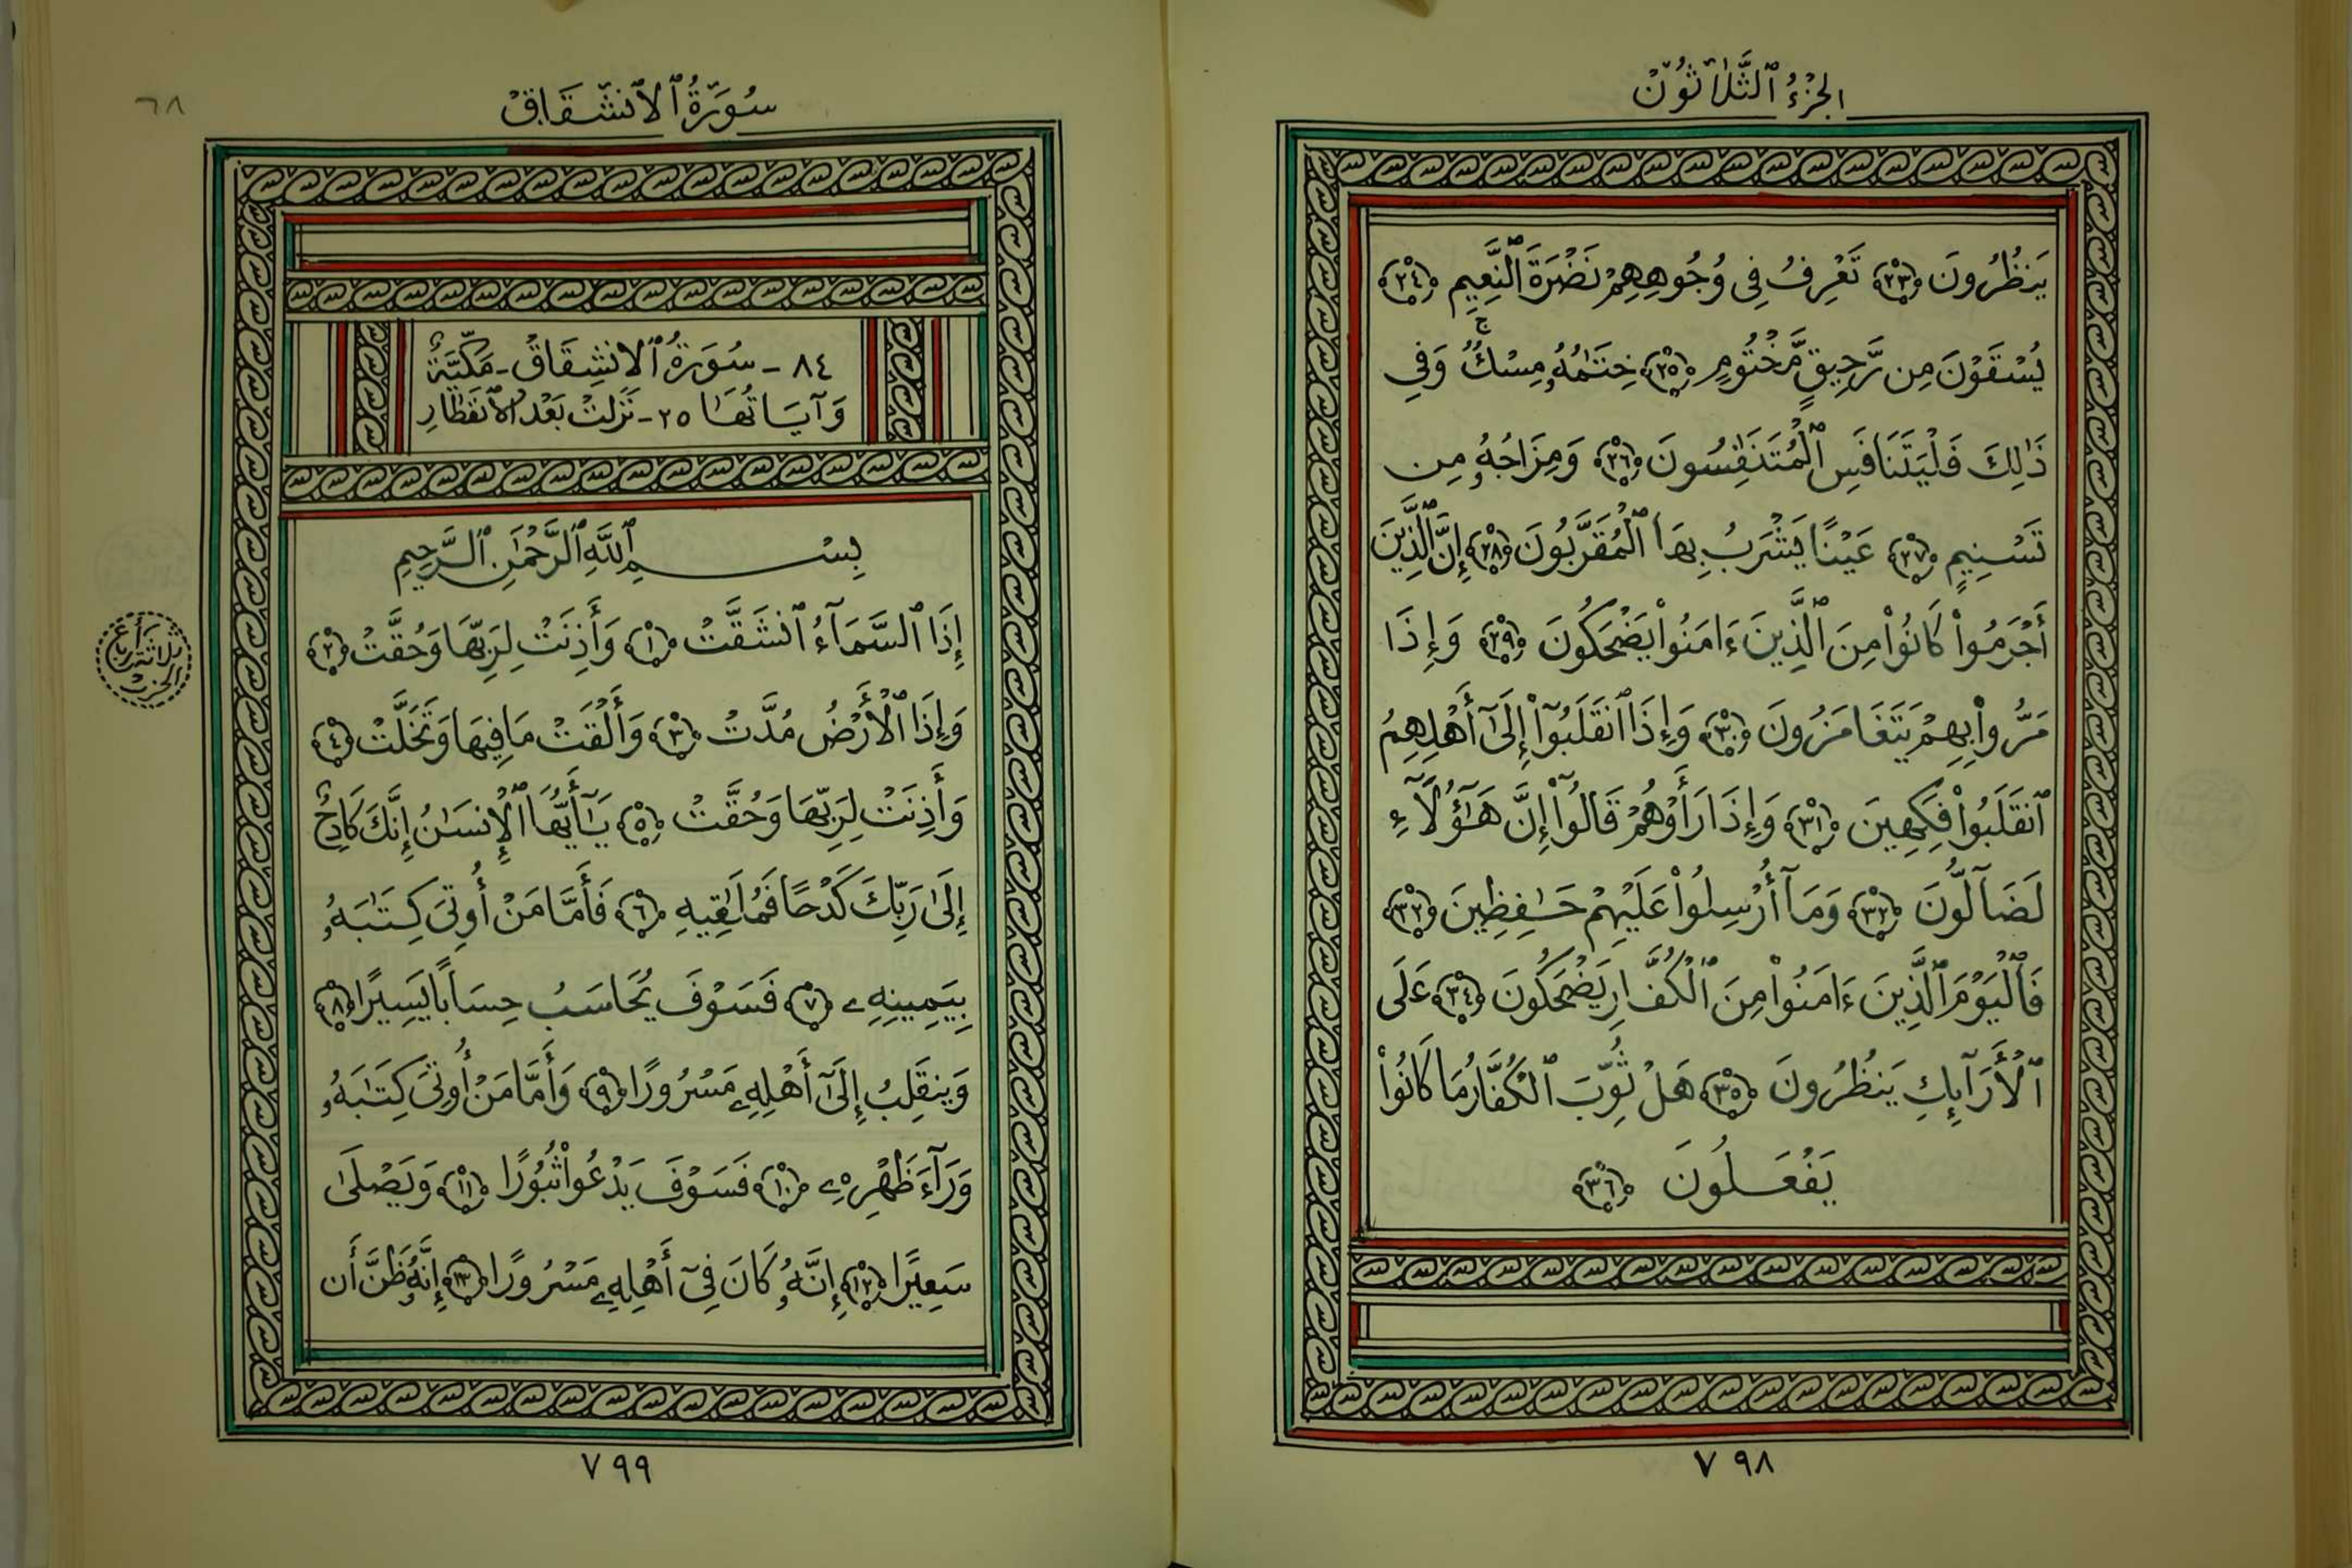 الجُزْءُ ٱلثَّلَاثُونَ
يَنظُرُونَ ﴿٢٣﴾ تَعْرِفُ فِى وُجُوهِهِمْ نَضْرَةَ ٱلنَّعِيمِ ﴿٢٤﴾
يُسْقَوْنَ مِن رَّحِيقٍ مَّخْتُومٍ ﴿٢٥﴾ خِتَـٰمُهُۥ مِسْكٌ ۚ وَفِى
ذَٰلِكَ فَلْيَتَنَافَسِ ٱلْمُتَنَـٰفِسُونَ ﴿٢٦﴾ وَمِزَاجُهُۥ مِن
تَسْنِيمٍ ﴿٢٧﴾ عَيْنًا يَشْرَبُ بِهَا ٱلْمُقَرَّبُونَ ﴿٢٨﴾ إِنَّ ٱلَّذِينَ
أَجْرَمُوا۟ كَانُوا۟ مِنَ ٱلَّذِينَ ءَامَنُوا۟ يَضْحَكُونَ ﴿٢٩﴾ وَإِذَا
مَرُّوا۟ بِهِمْ يَتَغَامَزُونَ ﴿٣٠﴾ وَإِذَا ٱنقَلَبُوٓا۟ إِلَىٰٓ أَهْلِهِمُ
ٱنقَلَبُوا۟ فَكِهِينَ ﴿٣١﴾ وَإِذَا رَأَوْهُمْ قَالُوٓا۟ إِنَّ هَـٰٓؤُلَآءِ
لَضَآلُّونَ ﴿٣٢﴾ وَمَآ أُرْسِلُوا۟ عَلَيْهِمْ حَـٰفِظِينَ ﴿٣٣﴾
فَٱلْيَوْمَ ٱلَّذِينَ ءَامَنُوا۟ مِنَ ٱلْكُفَّارِ يَضْحَكُونَ ﴿٣٤﴾ عَلَى
ٱلْأَرَآئِكِ يَنظُرُونَ ﴿٣٥﴾ هَلْ ثُوِّبَ ٱلْكُفَّارُ مَا كَانُوا۟
يَفْعَلُونَ ﴿٣٦﴾
٧٩٨
سُورَةُ ٱلِانشِقَاقِ
٦٨
٨٤ - سُورَةُ ٱلِانشِقَاقِ - مَكِّيَّةٌ
وَآيَاتُهَا ٢٥ - نَزَلَتْ بَعْدَ ٱلِانفِطَارِ
بِسْمِ ٱللَّهِ ٱلرَّحْمَـٰنِ ٱلرَّحِيمِ
إِذَا ٱلسَّمَآءُ ٱنشَقَّتْ ﴿١﴾ وَأَذِنَتْ لِرَبِّهَا وَحُقَّتْ ﴿٢﴾
ثلاثة أرباع
الحزب
وَإِذَا ٱلْأَرْضُ مُدَّتْ ﴿٣﴾ وَأَلْقَتْ مَا فِيهَا وَتَخَلَّتْ ﴿٤﴾
وَأَذِنَتْ لِرَبِّهَا وَحُقَّتْ ﴿٥﴾ يَـٰٓأَيُّهَا ٱلْإِنسَـٰنُ إِنَّكَ كَادِحٌ
إِلَىٰ رَبِّكَ كَدْحًا فَمُلَـٰقِيهِ ﴿٦﴾ فَأَمَّا مَنْ أُوتِىَ كِتَـٰبَهُۥ
بِيَمِينِهِۦ ﴿٧﴾ فَسَوْفَ يُحَاسَبُ حِسَابًا يَسِيرًا ﴿٨﴾
وَيَنقَلِبُ إِلَىٰٓ أَهْلِهِۦ مَسْرُورًا ﴿٩﴾ وَأَمَّا مَنْ أُوتِىَ كِتَـٰبَهُۥ
وَرَآءَ ظَهْرِهِۦ ﴿١٠﴾ فَسَوْفَ يَدْعُوا۟ ثُبُورًا ﴿١١﴾ وَيَصْلَىٰ
سَعِيرًا ﴿١٢﴾ إِنَّهُۥ كَانَ فِىٓ أَهْلِهِۦ مَسْرُورًا ﴿١٣﴾ إِنَّهُۥ ظَنَّ أَن
٧٩٩